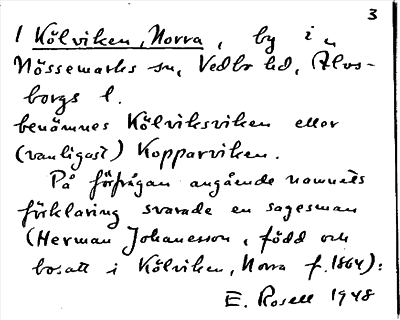 3
1 Kölviken, Norra, by i
Nössemarks sn, Vedbo hd, Älvs-
borgs l.
benämnes Kölviksviken eller
(vanligast) Kopparviken.
På förfrågan angående namnets
förklaring svarade en sagesman
(Herman Johanesson, född och
bosatt i Kölviken, Norra f. 1864):
E. Rosell 1948